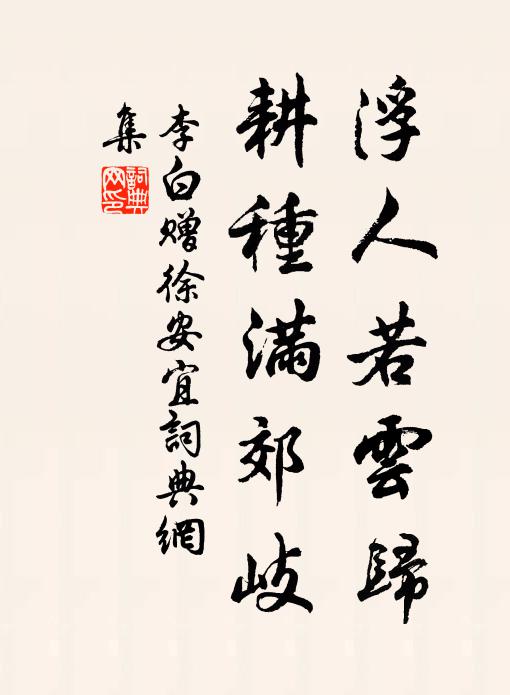 浮人若雲歸
耕種滿郊岐
李白贈徐安宜詞典網
集
詞典
网印